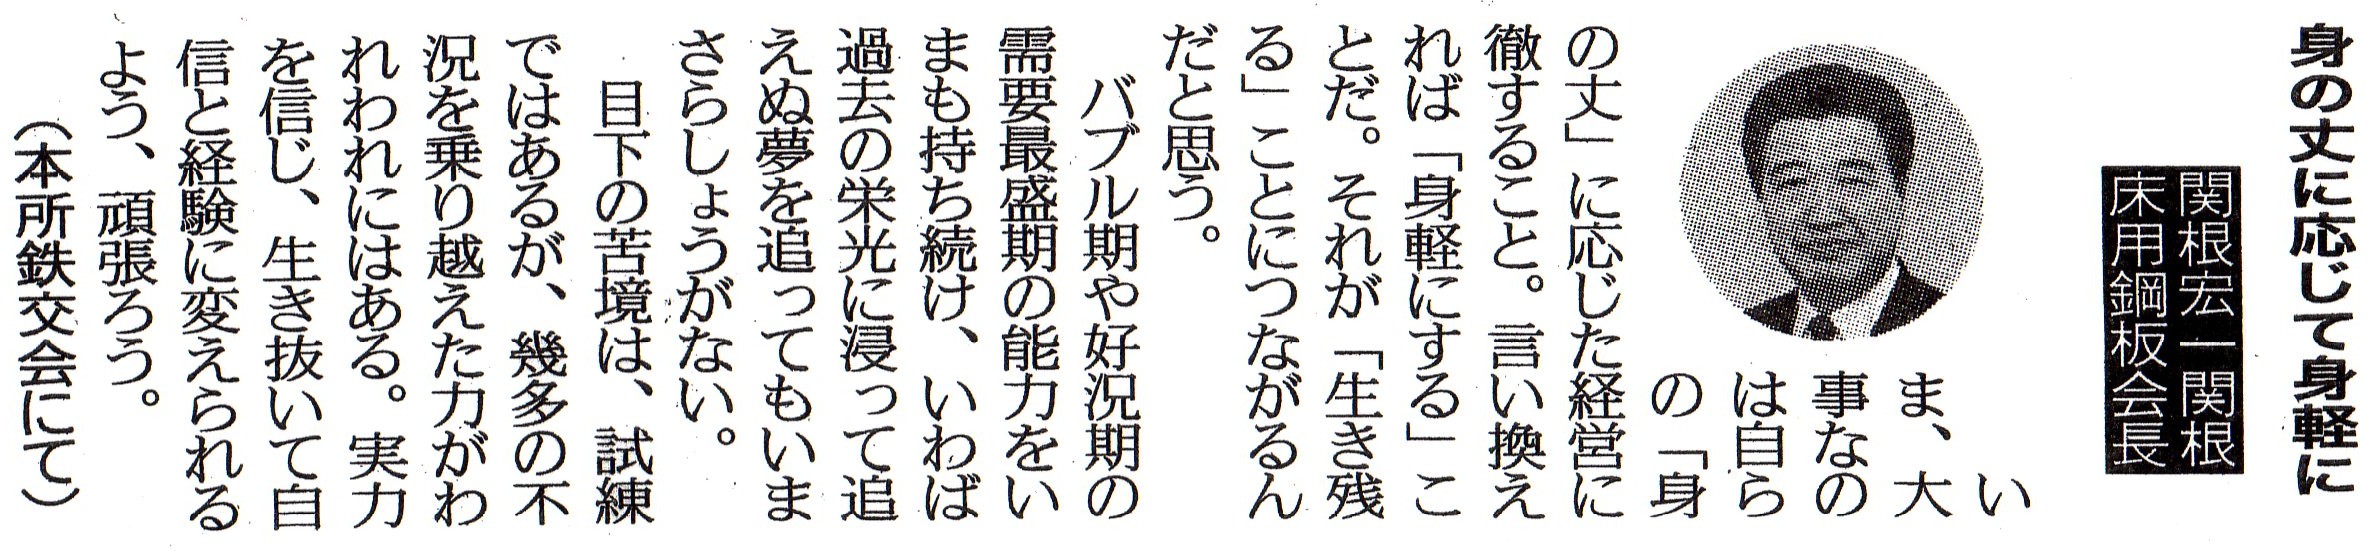 身の丈に応じて身軽に
関根宏一関根
床用鋼板会長
い
ま、大
事なの
は自ら
の「身
の丈」に応じた経営に
徹すること。言い換え
れば「身軽にする」こ
とだ。それが「生き残
る」ことにつながるん
だと思う。
バブル期や好況期の
需要最盛期の能力をい
まも持ち続け、いわば
過去の栄光に浸って追
えぬ夢を追ってもいま
さらしょうがない。
目下の苦境は、試練
ではあるが、幾多の不
況を乗り越えた力がわ
れわれにはある。実力
を信じ、生き抜いて自
信と経験に変えられる
よう、頑張ろう。
（本所鉄交会にて）